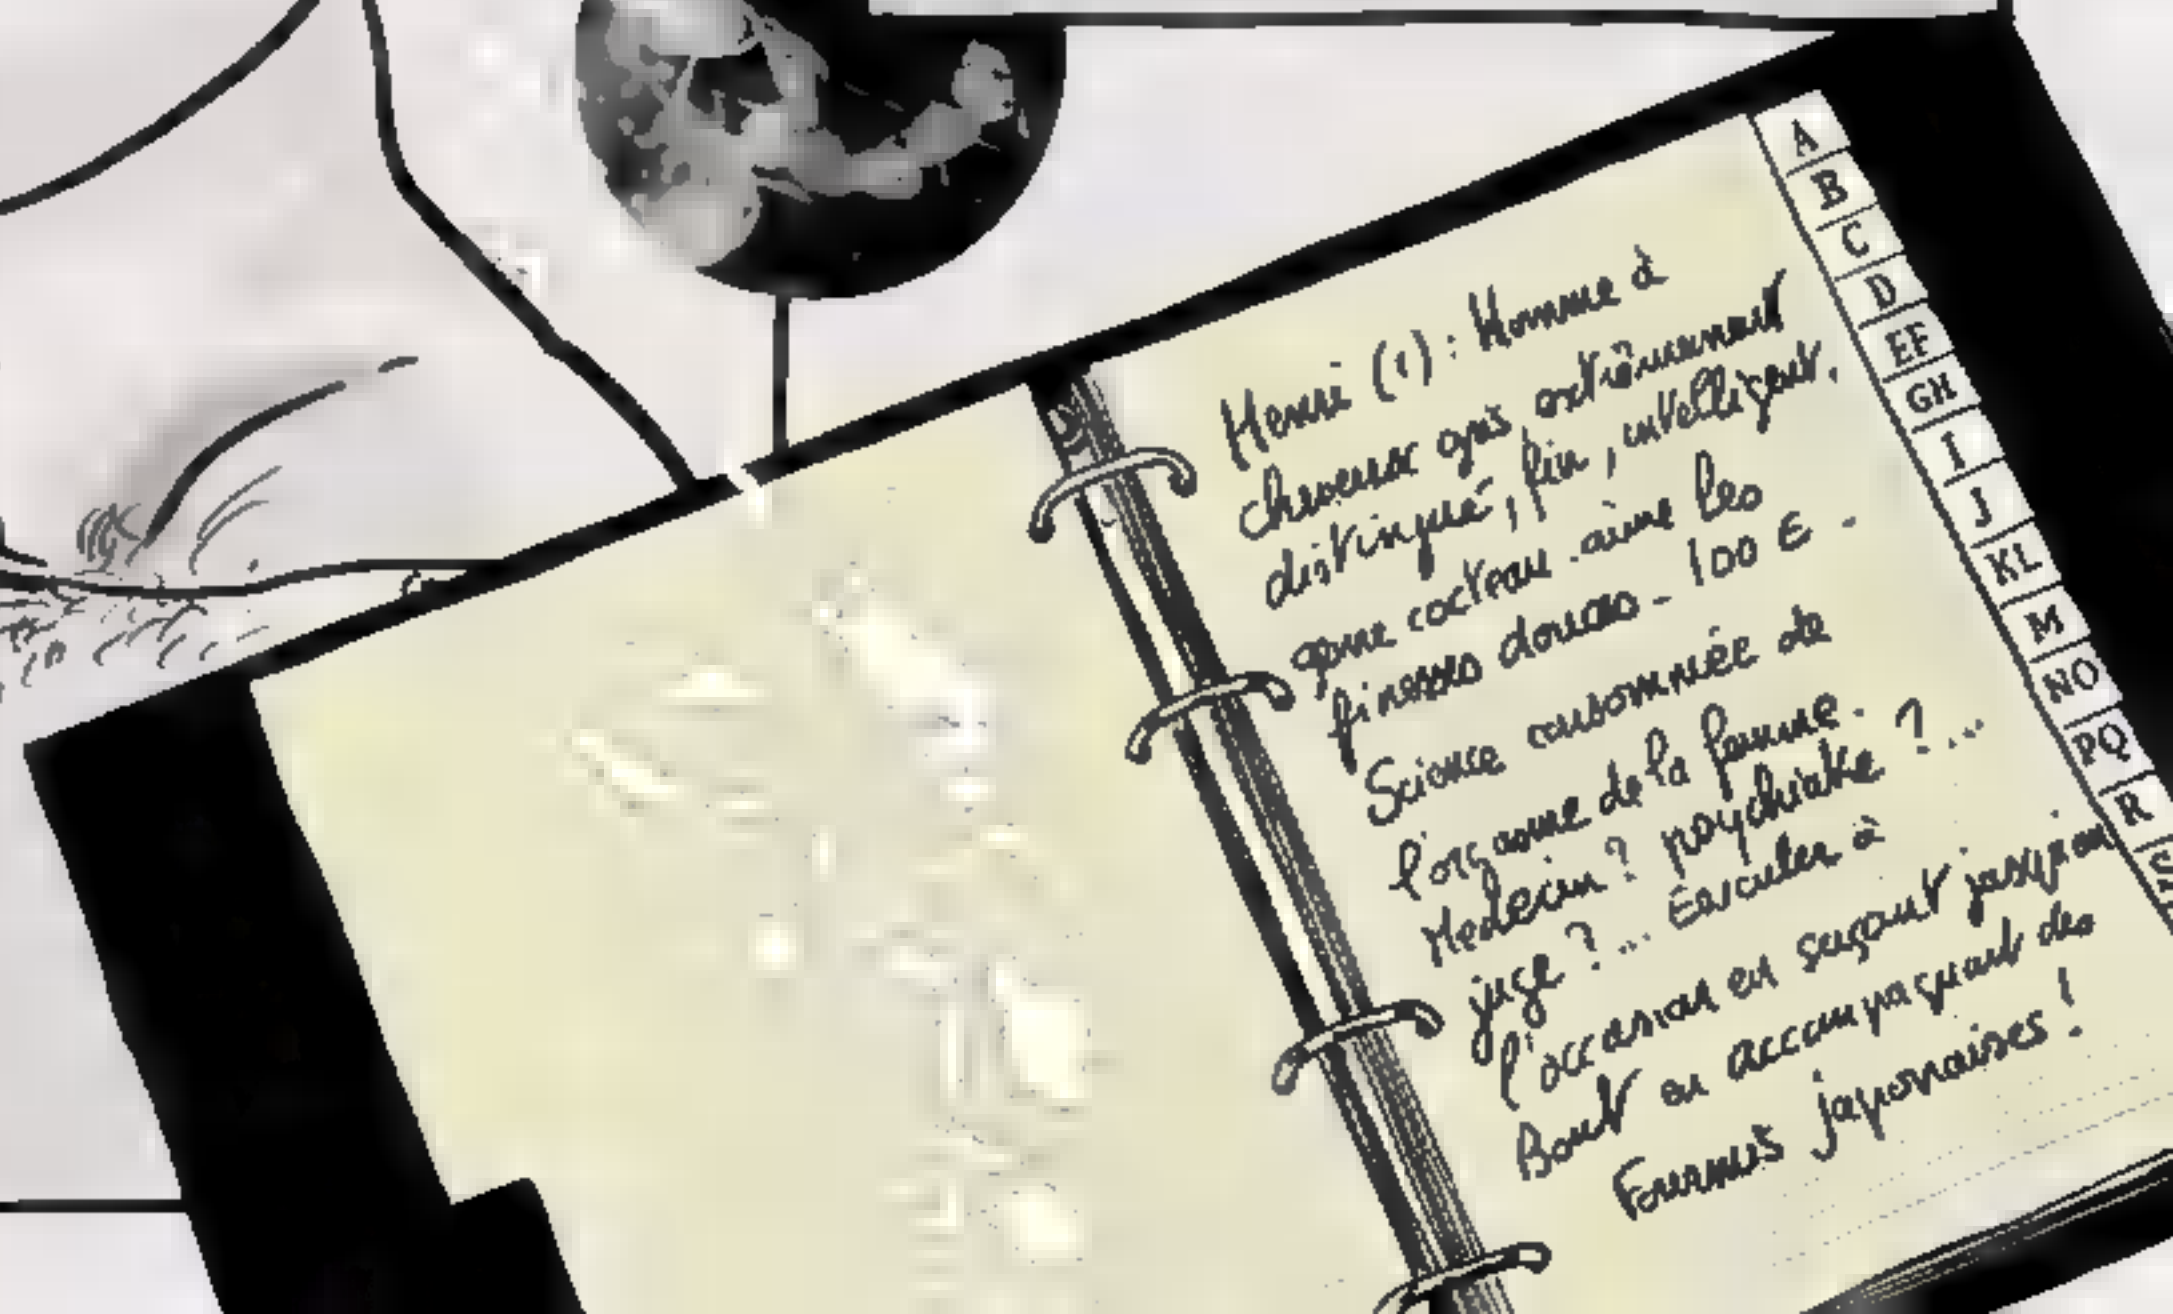 Henri (1) : Homme à
cheveux gris extrêmement
distingué, fin, intelligent.
genre cocteau. aime les
finesses douces - 100 € -
Science consommée de
l'orgasme de la femme.
Medecin ? psychiatre ?...
juge ?... Executer à
l'occasion en suçant jusqu'au
Bout ou accompagnant des
Fourmis japonaises !
A
B
C
D
EF
GH
I
J
KL
M
NO
PQ
R